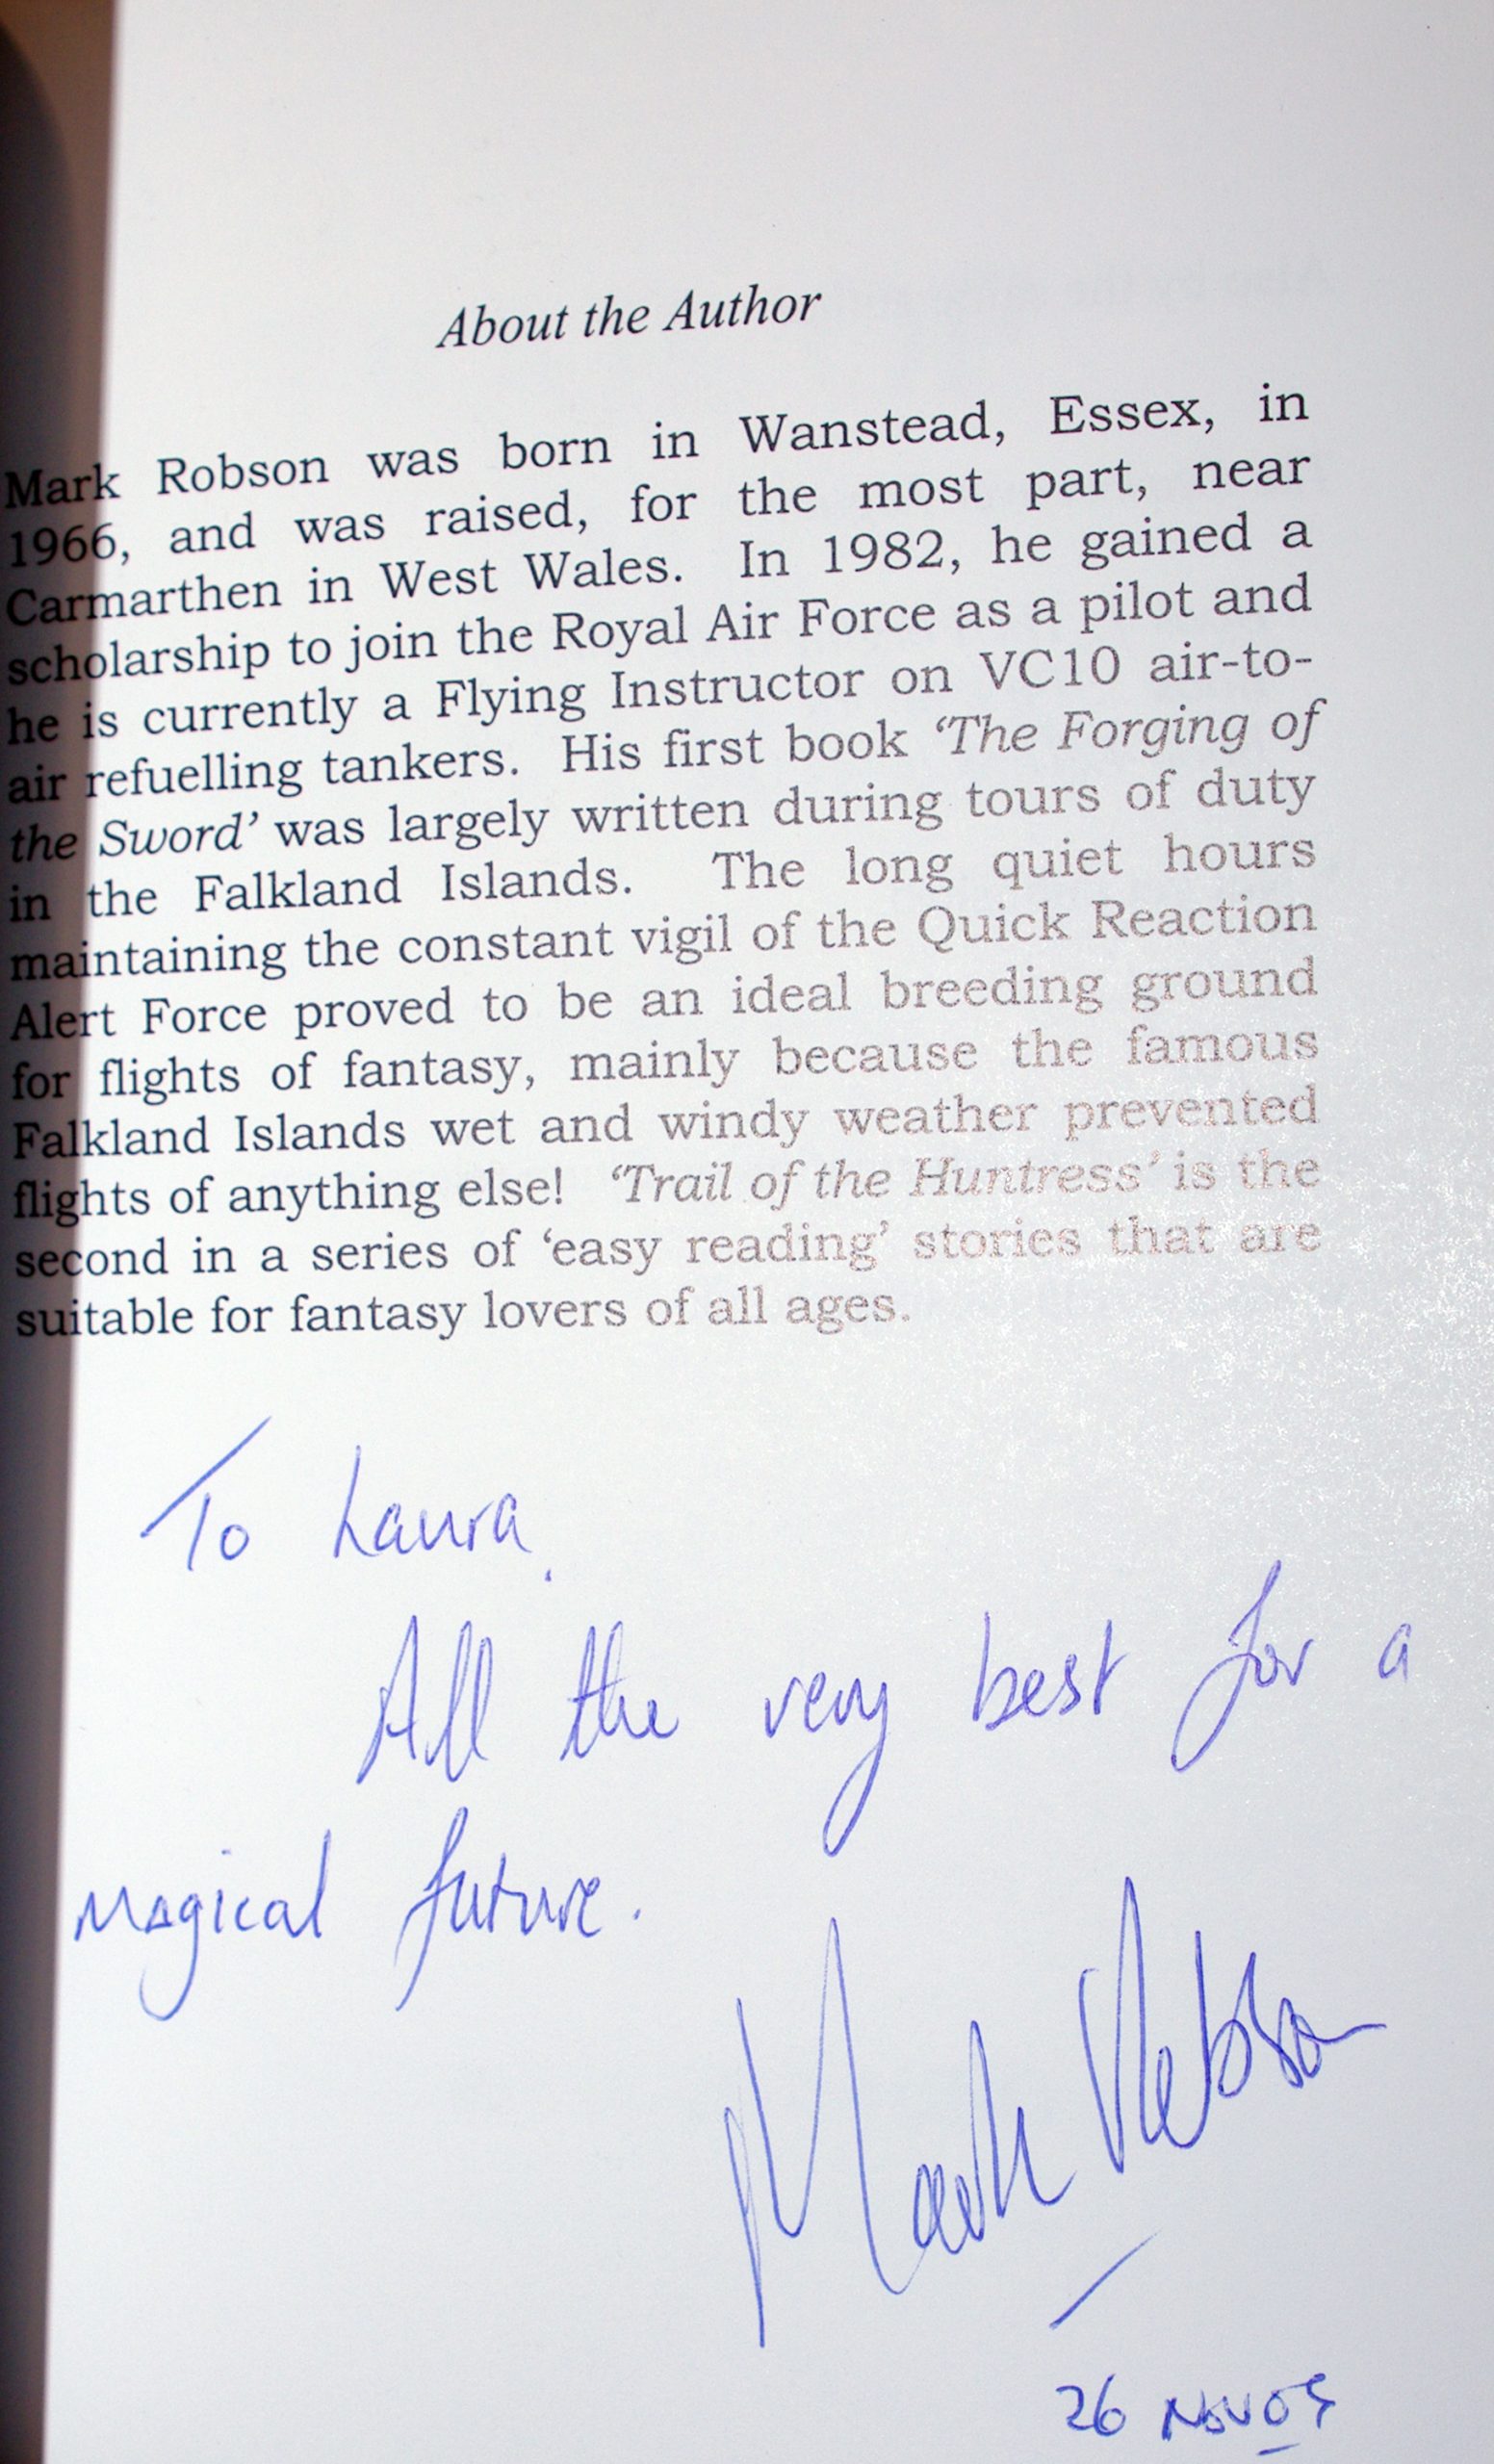 About the Author
Mark Robson was born in Wanstead, Essex, in
1966, and was raised, for the most part, near
Carmarthen in West Wales. In 1982, he gained a
scholarship to join the Royal Air Force as a pilot and
he is currently a Flying Instructor on VC10 air-to-
air refuelling tankers. His first book ‘The Forging of
the Sword’ was largely written during tours of duty
in the Falkland Islands. The long quiet hours
maintaining the constant vigil of the Quick Reaction
Alert Force proved to be an ideal breeding ground
for flights of fantasy, mainly because the famous
Falkland Islands wet and windy weather prevented
flights of anything else! ‘Trail of the Huntress’ is the
second in a series of ‘easy reading’ stories that are
suitable for fantasy lovers of all ages.
To Laura.
All the very best for a
magical future.
Mark Robson
26 Nov